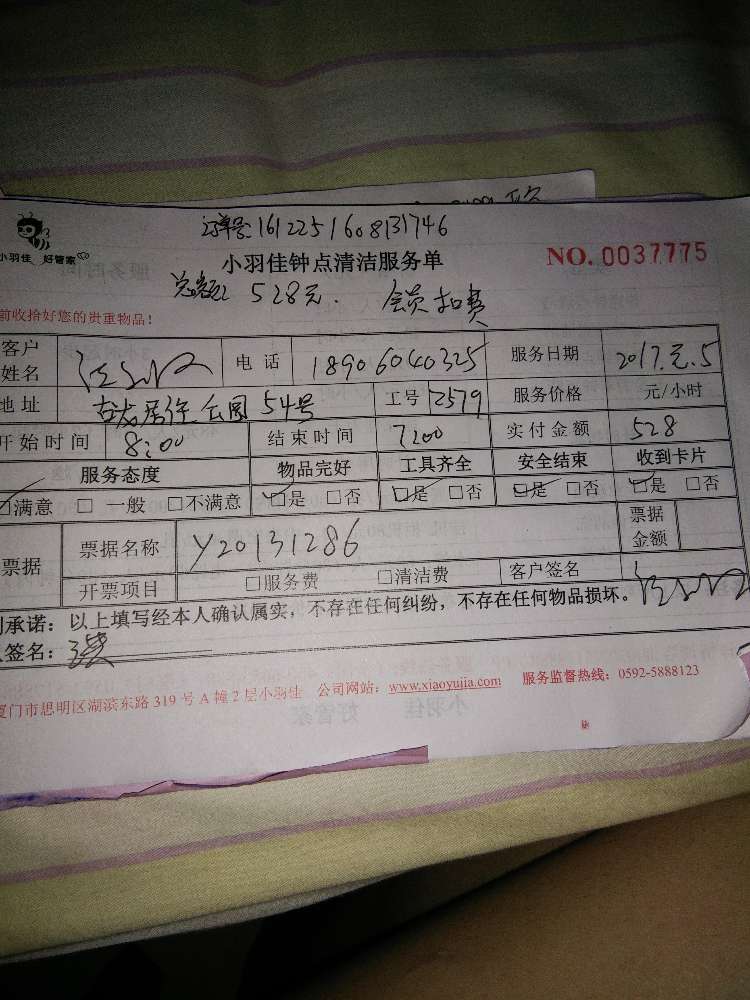 订单号:1612251608131746
小羽佳 好管家
小羽佳钟点清洁服务单
NO. 0037775
总额 528元. 会员扣费
前收拾好您的贵重物品!
客户姓名 电话 18906040325 服务日期 2017.元.5
地址 居住公园54号 工号 2579 服务价格 元/小时
开始时间 8:00 结束时间 7:00 实付金额 528
服务态度 物品完好 工具齐全 安全结束 收到卡片
☑满意 □ 一般 □不满意 ☑是 □否 ☑是 □否 ☑是 □否 ☑是 □否
票据 票据名称 Y20131286 票据金额
开票项目 □服务费 □清洁费 客户签名
承诺:以上填写经本人确认属实,不存在任何纠纷,不存在任何物品损坏。
签名:
厦门市思明区湖滨东路 319 号 A 幢 2 层小羽佳 公司网站:www.xiaoyujia.com 服务监督热线:0592-5888123